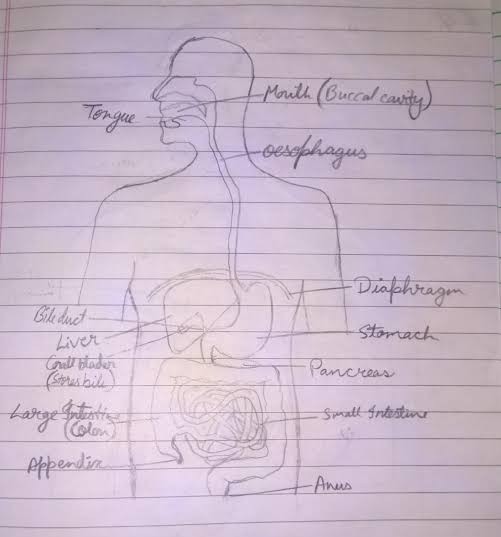 Mouth (Buccal cavity)
Tongue
Oesophagus
Diaphragm
Bile duct
Liver
Stomach
Gall bladder
(Stores bile)
Pancreas
Large Intestine
(Colon)
Small Intestine
Appendix
Anus